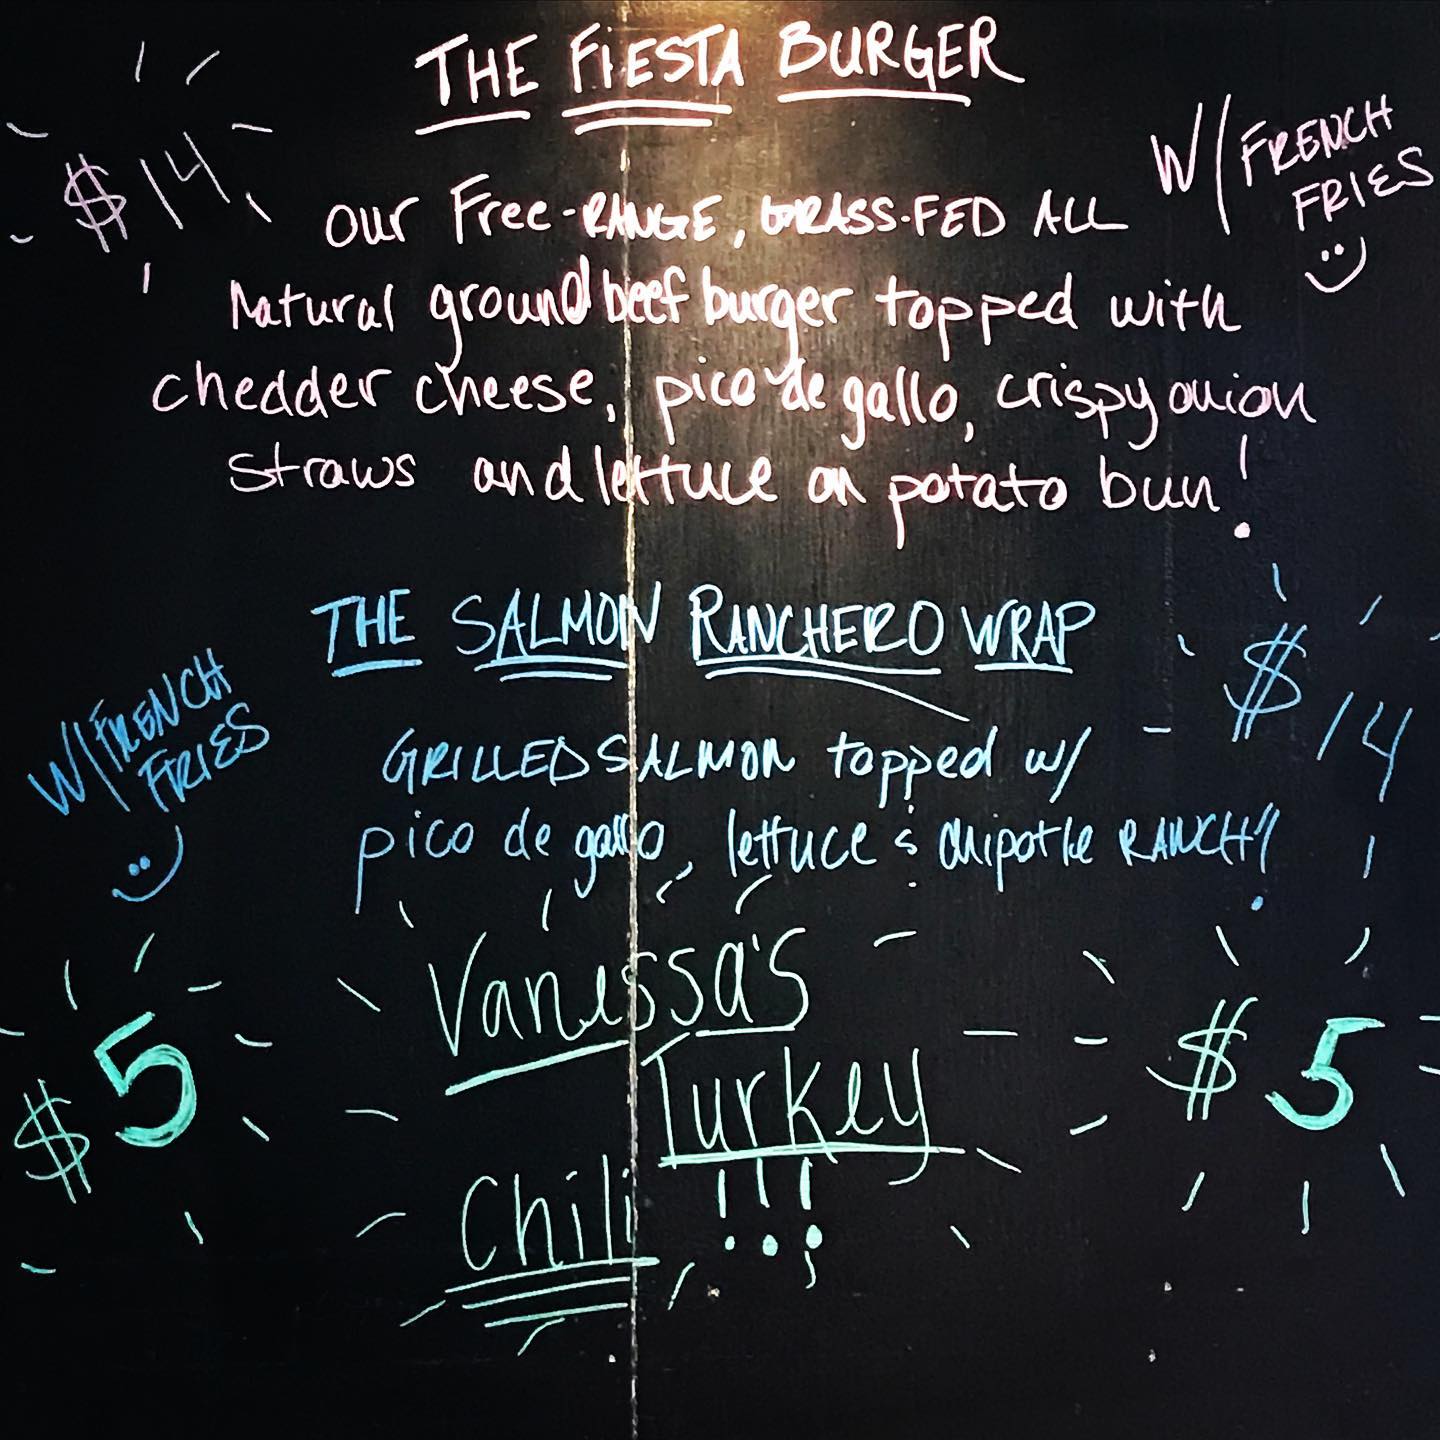 THE FIESTA BURGER
$14
W/ FRENCH
FRIES
our Free-RANGE, GRASS-FED ALL
Natural ground beef burger topped with
chedder cheese, pico de gallo, crispy onion
straws and lettuce on potato bun!
THE SALMON RANCHERO WRAP
$14
W/ FRENCH
FRIES
GRILLED SALMON topped w/
pico de gallo, lettuce & chipotle RANCH!
Vanessa's
$5
$5
Turkey
Chili!!!